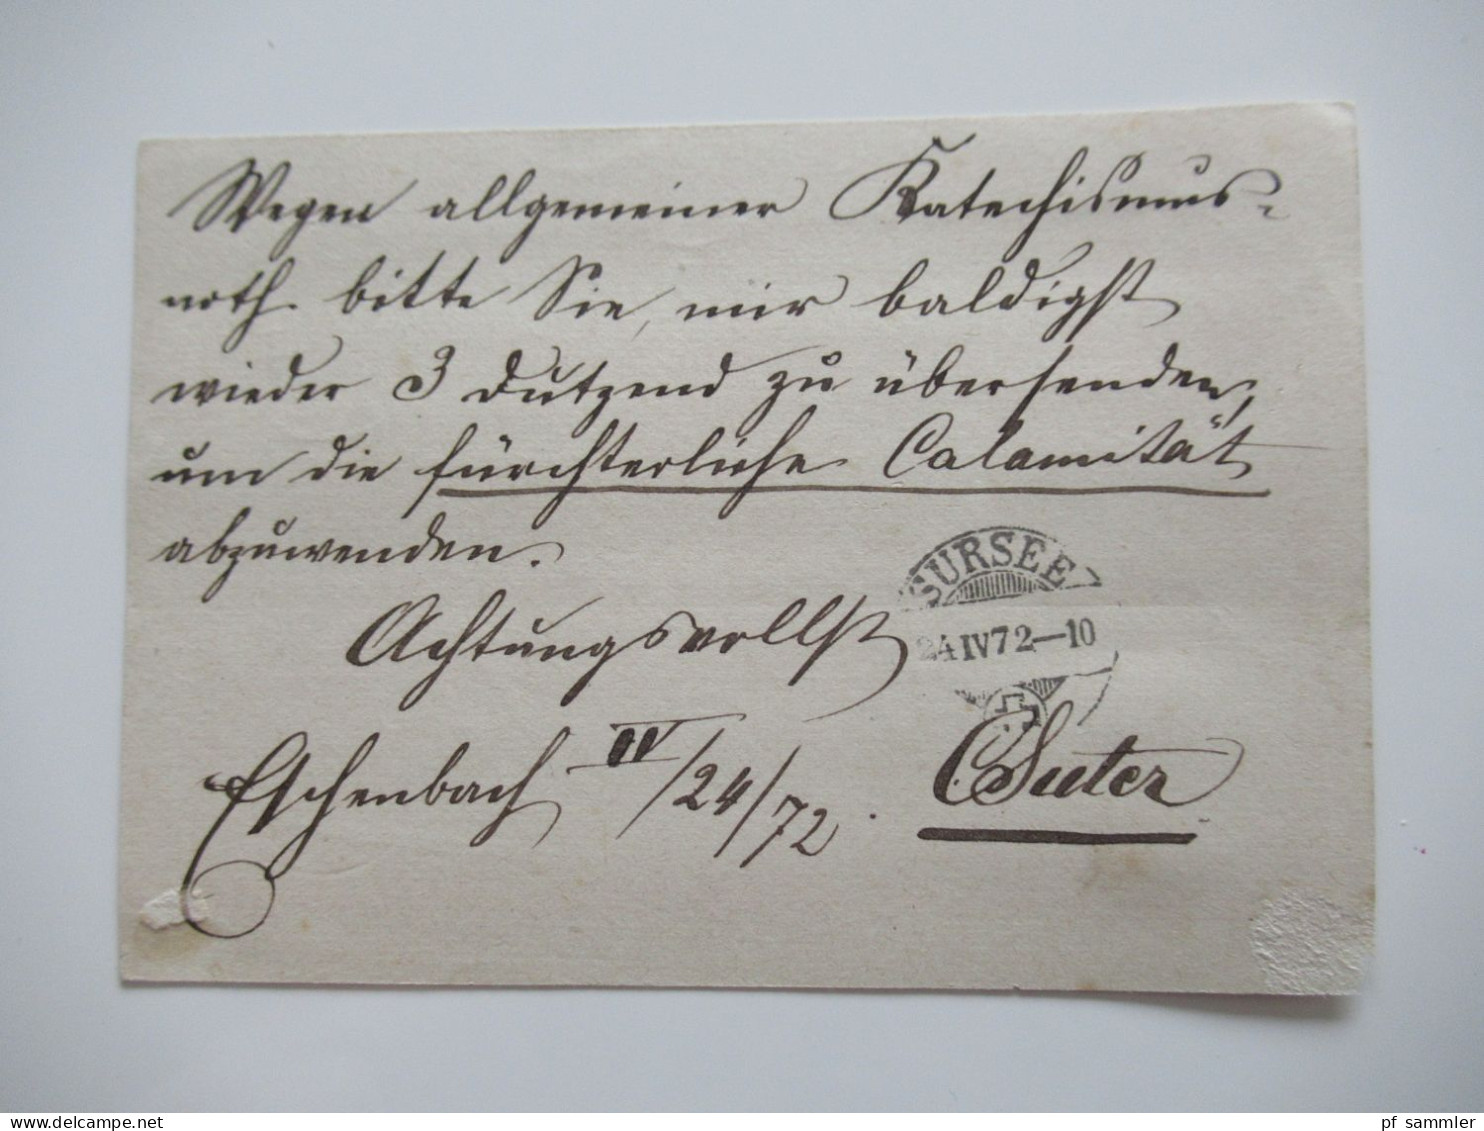 Wegen allgemeiner Katechismus-
noth bitte Sie, mir baldigst
wieder 3 Dutzend zu übersenden,
um die fürchterliche Calamität
abzuwenden.
Achtungsvollst
SURSEE
24 IV 72—10
Eschenbach IV/24/72. C Suter
pf sammler